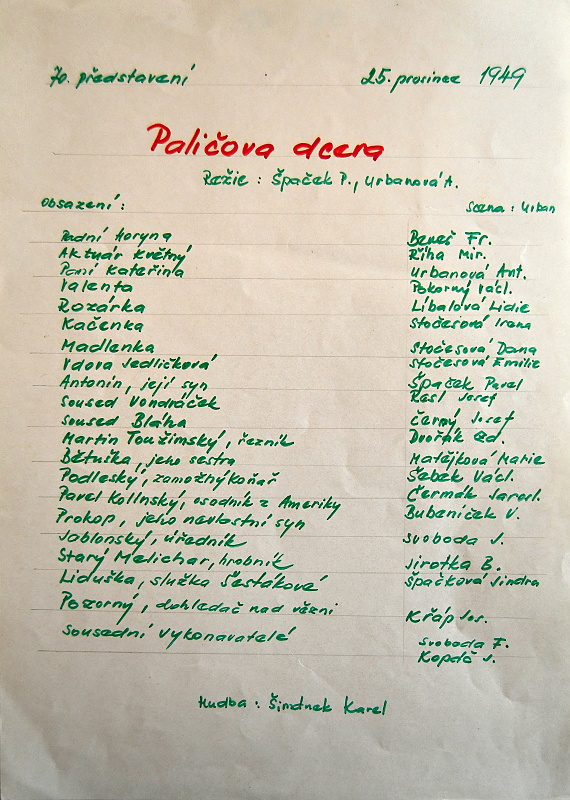 70. představení 25. prosince 1949
Paličova dcera
Režie : Špaček P., Urbanová A.
obsazení : Scena : Urban
Radní Horyna Beneš Fr.
Aktuár Květný Říha Mir.
Paní Kateřina Urbanová Ant.
Valenta Pokorný Václ.
Rozárka Líbalová Lidie
Kačenka Stočesová Irena
Madlenka Stočesová Dana
Vdova Jedličková Stočesová Emilie
Antonín, její syn Špaček Pavel
Soused Vondráček Resl Josef
Soused Bláha Černý Josef
Martin Toužimský, řezník Dvořák Ed.
Bětuška, jeho sestra Matějková Marie
Podleský, zámožný koňař Šebek Václ.
Pavel Kolínský, osadník z Ameriky Čermák Jarosl.
Prokop, jeho nevlastní syn Bubeníček V.
Jablonský, úředník Svoboda J.
Starý Melichar, hrobník Jirotka B.
Liduška, služka Šestákové Špačková Jindra
Pozorný, dohledač nad vězni Křáp Jos.
Sousední vykonavatelé Svoboda F.
Kopáč J.
Hudba : Šimůnek Karel